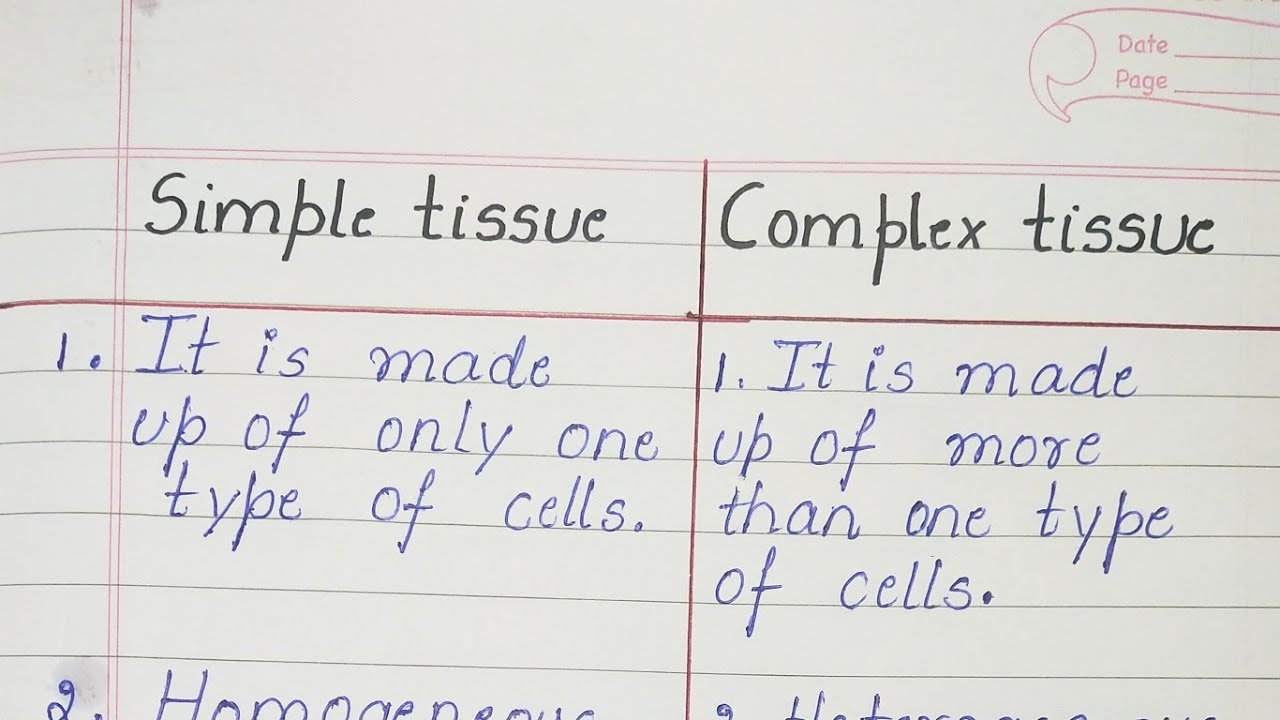 Date
Page
Simple tissue
Complex tissue
1. It is made
up of only one
type of cells.
1. It is made
up of more
than one type
of cells.
2. Homogeneous
2.